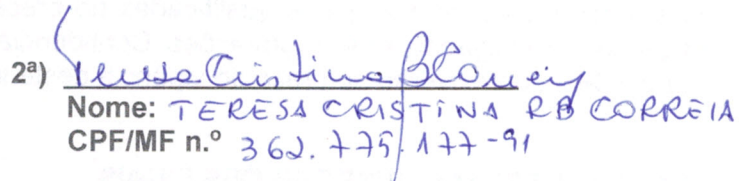 2ª) Teresa Cristina
Nome: TERESA CRISTINA RB CORREIA
CPF/MF n.º 362.775.177-91